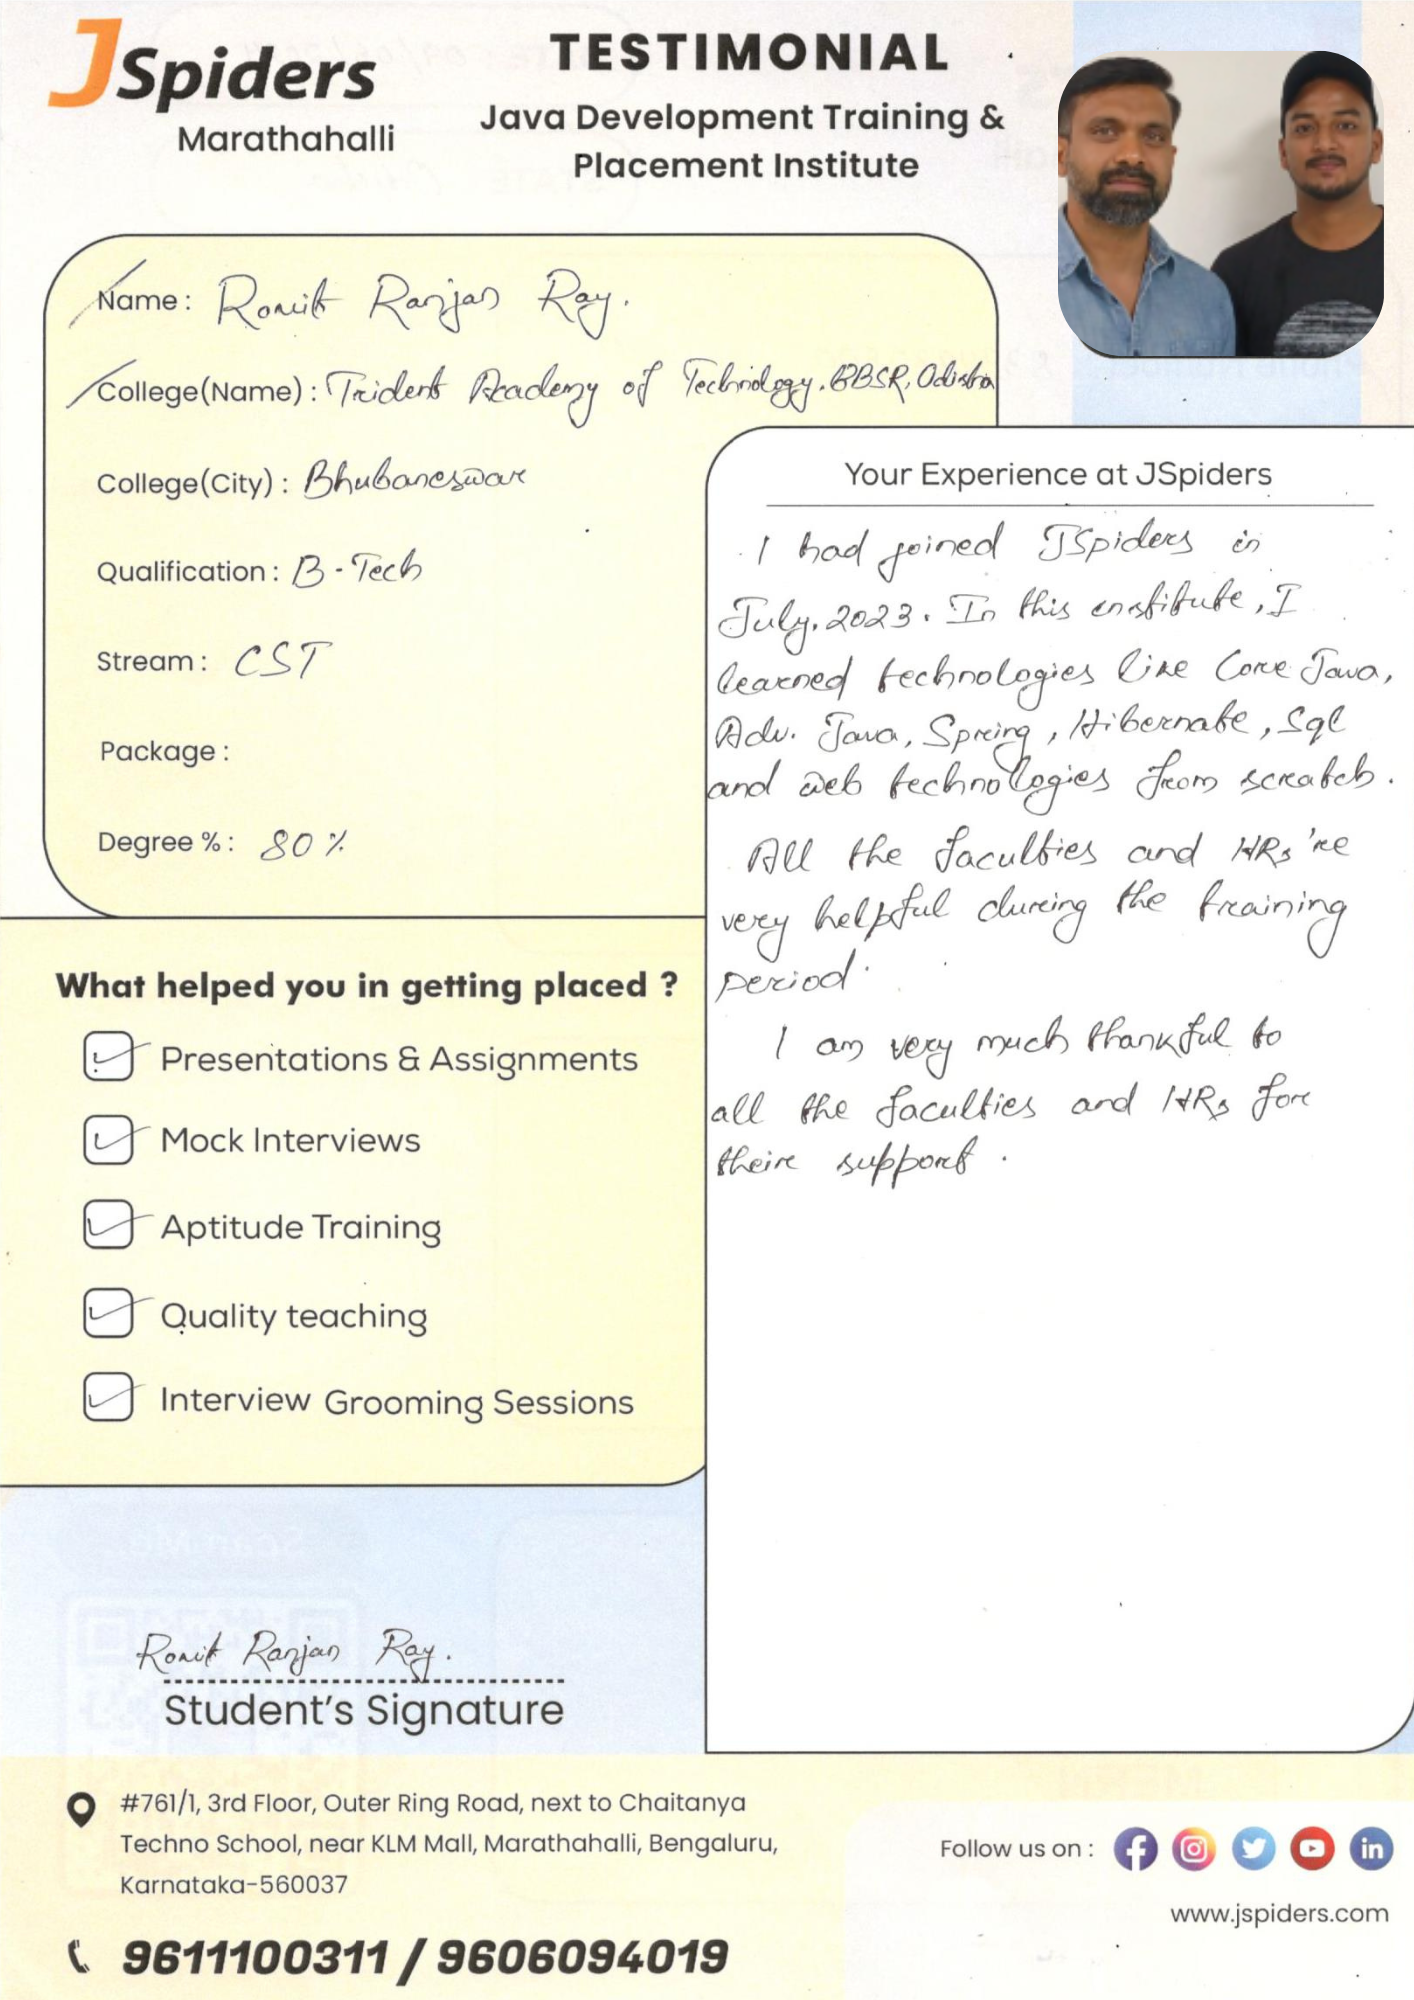 JSpiders
Marathahalli
TESTIMONIAL
Java Development Training &
Placement Institute
Name : Ronit Ranjan Ray.
College(Name) : Trident Academy of Technology. BBSR, Odisha
College(City) : Bhubaneswar
Qualification : B-Tech
Stream : CST
Package :
Degree % : 80 %
What helped you in getting placed ?
Presentations & Assignments
Mock Interviews
Aptitude Training
Quality teaching
Interview Grooming Sessions
Your Experience at JSpiders
I had joined JSpiders in
July, 2023. In this institute, I
learned technologies like Core Java,
Adv. Java, Spring, Hibernate, Sql
and web technologies from scratch.
All the faculties and HRs 're
very helpful during the training
period.
I am very much thankful to
all the faculties and HRs for
their support.
Ronit Ranjan Ray.
Student's Signature
#761/1, 3rd Floor, Outer Ring Road, next to Chaitanya
Techno School, near KLM Mall, Marathahalli, Bengaluru,
Karnataka-560037
9611100311 / 9606094019
Follow us on :
www.jspiders.com